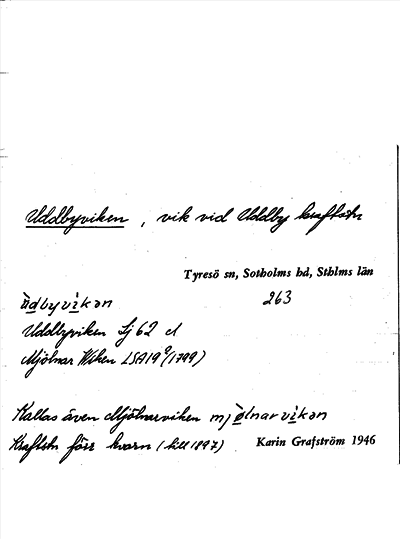 Uddbyviken, vik vid Uddby kraftstn
Tyresö sn, Sotholms hd, Sthlms län
ùdbyvìkən 263
Uddbyviken Sj 62 d
Mjölnar Wiken LSA19⁹(1799)
Kallas även Mjölnarviken mjø̀lnarvìkən
Kraftstn förr kvarn (till 1897) Karin Grafström 1946